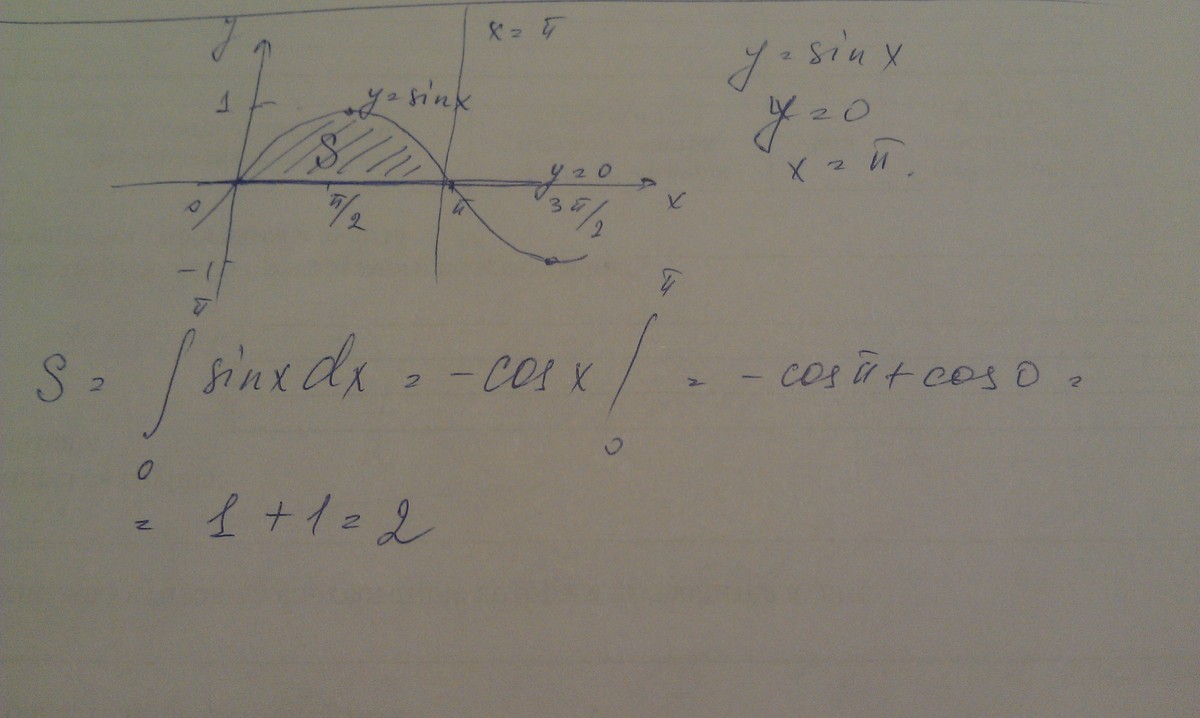 y
x = π
1
y = sin x
S
y = 0
0
π/2
π
3π/2
x
-1
y = sin x
y = 0
x = π.
S = ∫₀^π sin x dx = -cos x /₀^π = -cos π + cos 0 =
= 1 + 1 = 2